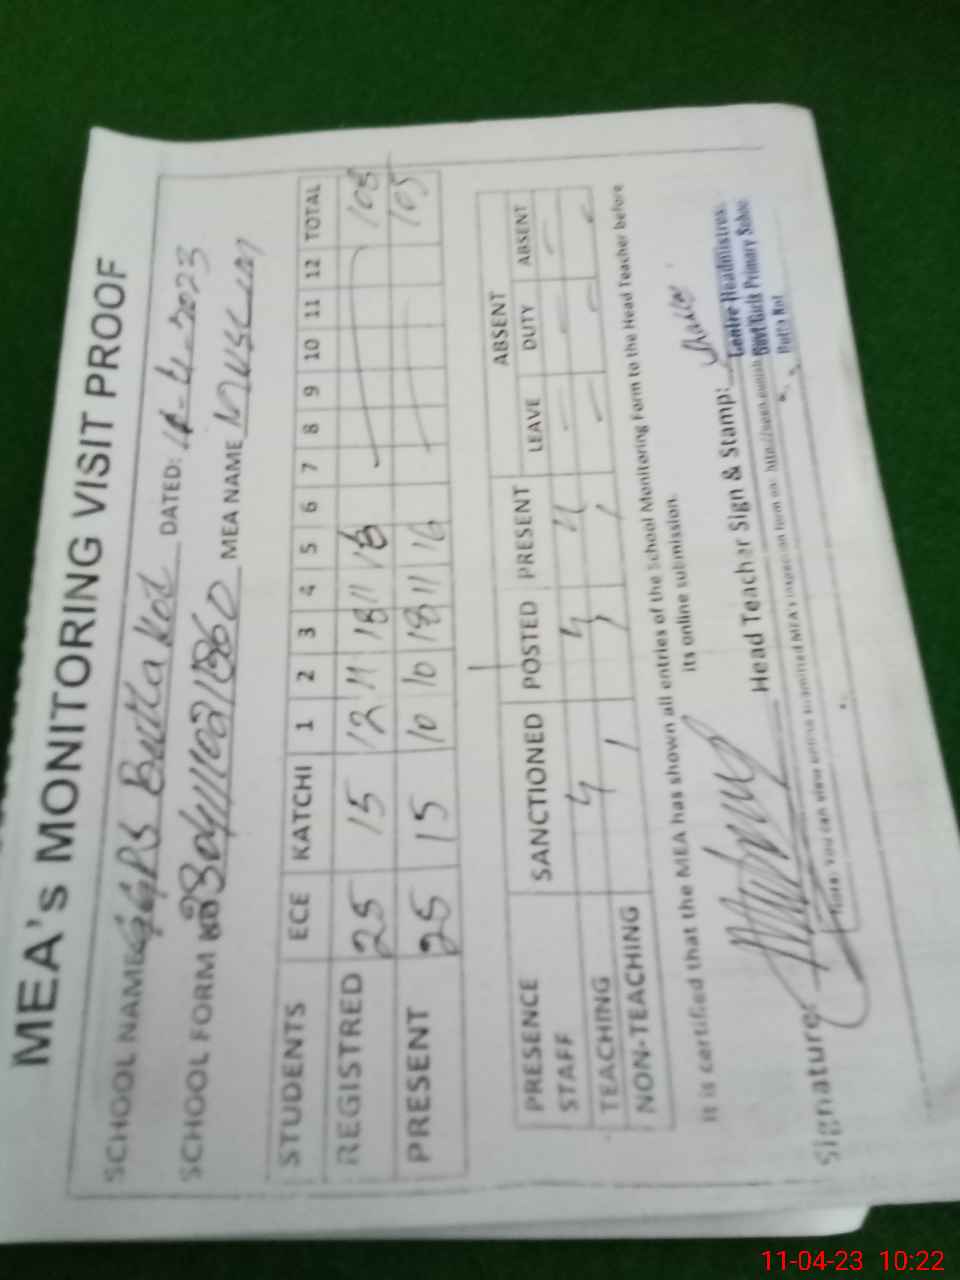 MEA's MONITORING VISIT PROOF
SCHOOL NAME GGPS Butta Kot DATED: 11-4-2023
SCHOOL FORM MEA NAME
STUDENTS ECE KATCHI 1 2 3 4 5 6 7 8 9 10 11 12 TOTAL
REGISTRED 25 15 12 11 18 11 16 108
PRESENT 25 15 10 10 18 11 16 105
ABSENT
PRESENCE SANCTIONED POSTED PRESENT LEAVE DUTY ABSENT
STAFF
TEACHING 4 4 4 - - -
NON-TEACHING 1 1 1 - - -
It is certified that the MEA has shown all entries of the School Monitoring Form to the Head Teacher before
its online submission.
Signature: Head Teacher Sign & Stamp:
Centre Headmistress
Govt Girls Primary School
Note: You can view online submitted MEA's inspection form on:
11-04-23 10:22